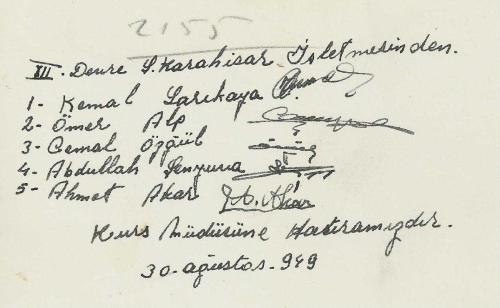 2155
XII. Devre Ş.Karahisar İşletmesinden.
1- Kemal Sarıkaya
2- Ömer Alp
3- Cemal Özgül
4- Abdullah Şenyuva
5- Ahmet Akar A. Akar
Kurs Müdürüne Hatıramızdır.
30-ağustos-949